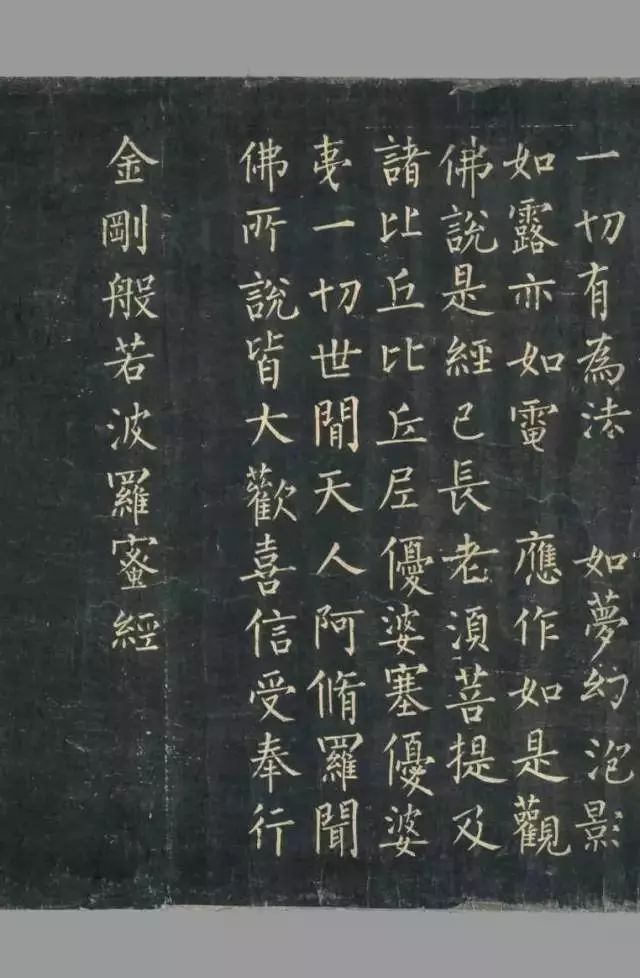 一切有為法 如夢幻泡影
如露亦如電 應作如是觀
佛說是經已長老須菩提及
諸比丘比丘尼優婆塞優婆
夷一切世間天人阿脩羅聞
佛所說皆大歡喜信受奉行
金剛般若波羅蜜經